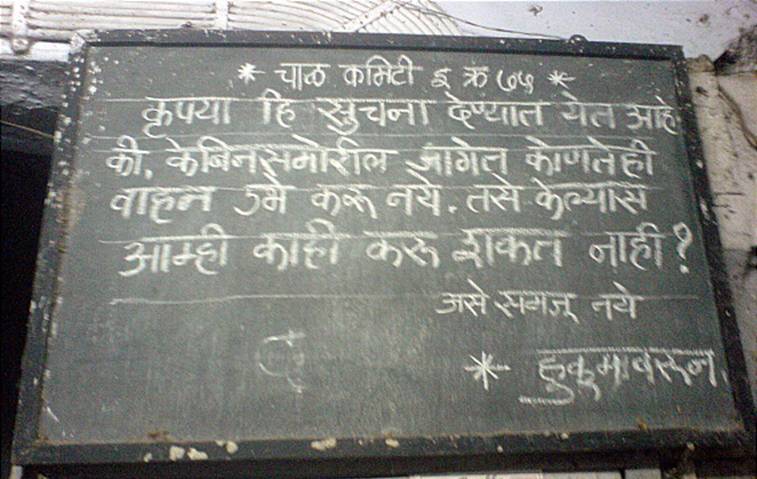 * चाळ कमिटी इ क्र ७५ *
कृपया हि सुचना देण्यात येत आहे
की, केबिनसमोरील जागेत कोणतेही
वाहन उभे करू नये. तसे केल्यास
आम्ही काही करू शकत नाही?
असे समजू नये
* हुकुमावरून.